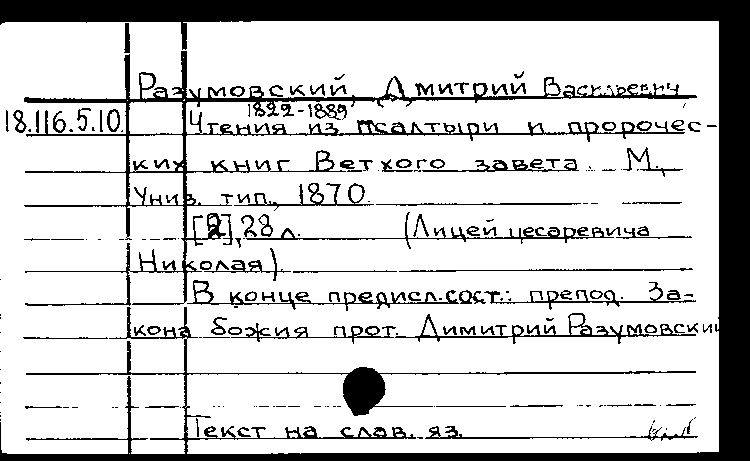 Разумовский, Дмитрий Васильевич
1822-1889
18.116.5.10 Чтения из псалтыри и пророчес-
ких книг Ветхого завета. М.,
Унив. тип., 1870.
[2], 28 л. (Лицей цесаревича
Николая)
В конце предисл. сост.: препод. За-
кона божия прот. Димитрий Разумовский
Текст на слав. яз.